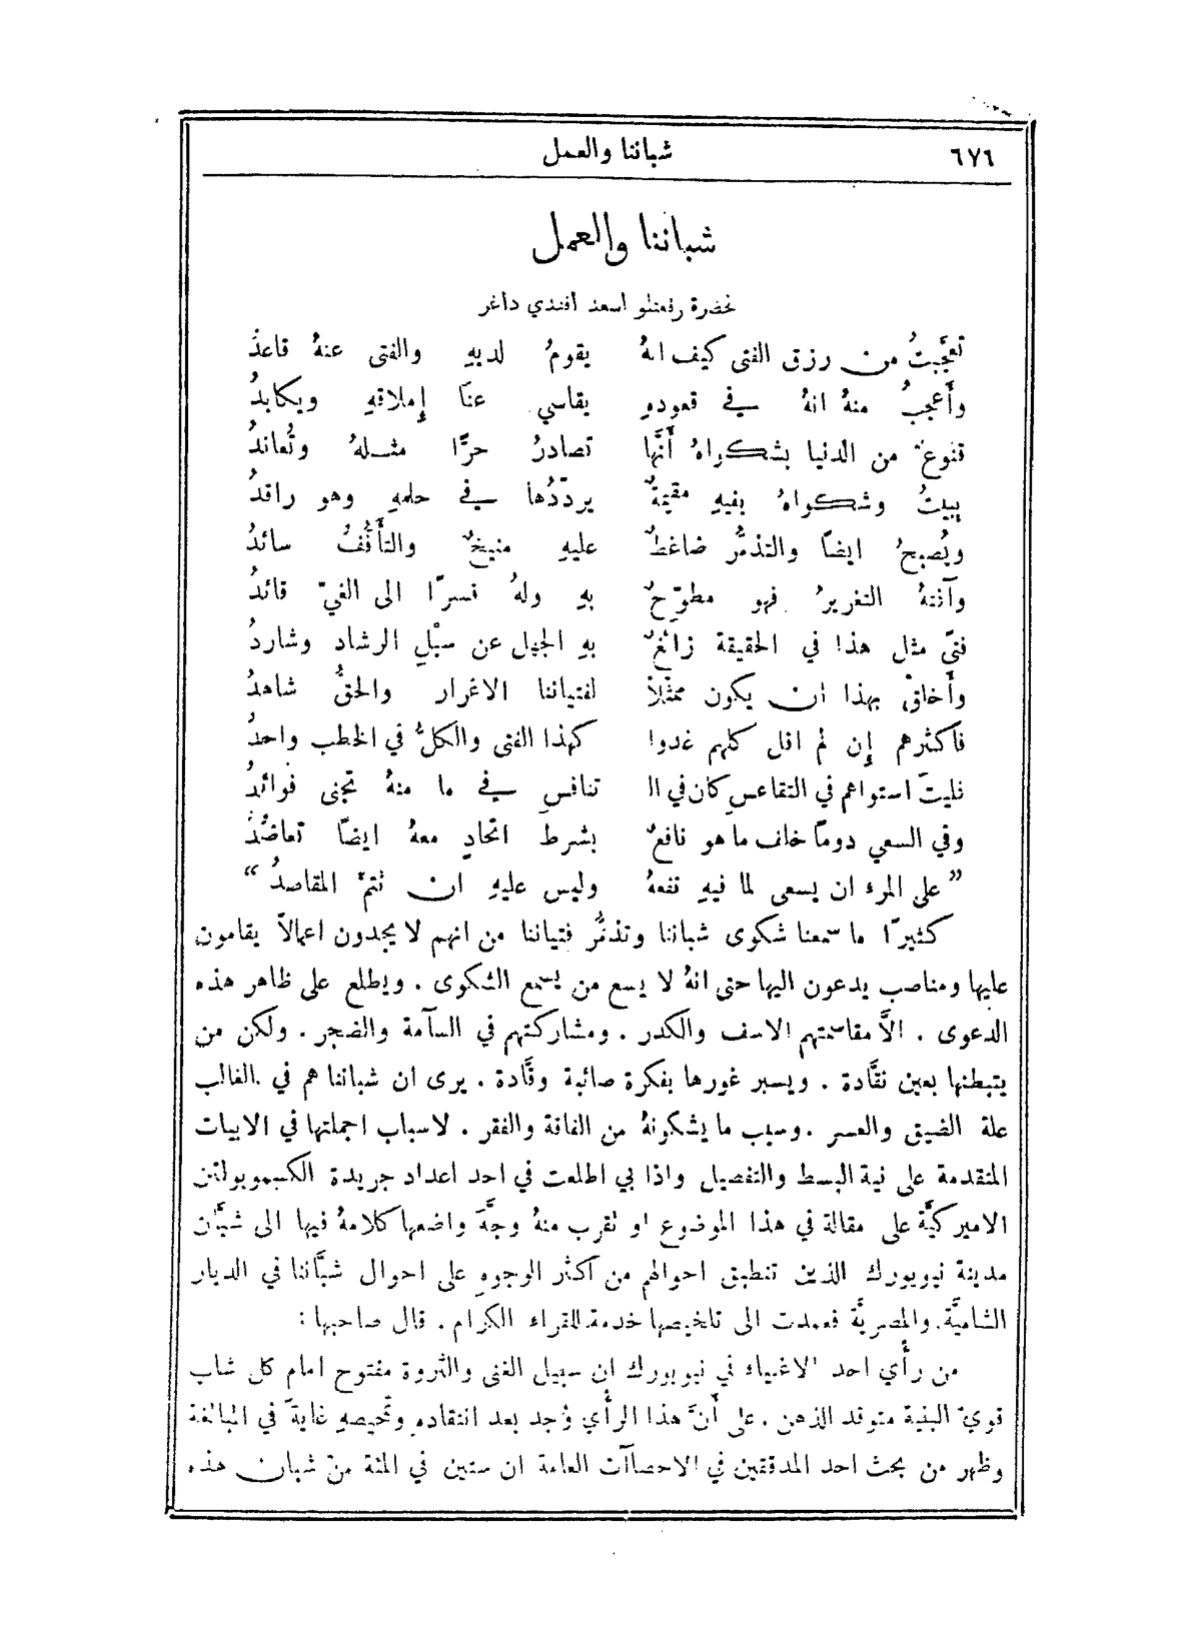 ٦٧٦ شباننا والعمل
شباننا والعمل
لحضرة رفعتلو اسعد افندي داغر
تعجَّبتُ من رزق الفتى كيف انهُ يقومُ لديهِ والفتى عنهُ قاعدُ
وأَعجبُ منهُ انهُ في قعودهِ يقاسي عنا إِملاقهِ ويكابدُ
قنوعٌ من الدنيا بشكراهُ أَنَّها تصادرُ حرًّا مثلهُ وتُعاندُ
يبيتُ وشكواهُ بفيهِ مقيمةٌ يردّدُها في حلمهِ وهو راقدُ
ويُصبحُ ايضًا والتذمُّر ضاغطٌ عليهِ منيخٌ والتأَفُّفُ سائدُ
وآفتهُ التغريرُ فهو مطوّحٌ بهِ ولهُ قسرًا الى الغيّ قائدُ
فتىً مثل هذا في الحقيقة زائغٌ بهِ الجهل عن سبْلِ الرشاد وشاردُ
وأَخلقْ بهذا ان يكون ممثّلاً لفتياننا الاغرار والحقُّ شاهدُ
فاكثرهم إِن لم اقل كلهم غدوا كهذا الفتى والكلُّ في الخطب واحدُ
فليتَ استواءهم في التقاعسِ كان في ال تنافسِ في ما منهُ تجنى فوائدُ
وفي السعي دومًا خلف ما هو نافعٌ بشرط اتحادٍ معهُ ايضًا تعاضُدُ
” على المرء ان يسعى لما فيهِ نفعهُ وليس عليهِ ان تتمَّ المقاصدُ “
كثيرًا ما سمعنا شكوى شباننا وتذمُّر فتياننا من انهم لا يجدون اعمالاً يقامون
عليها ومناصب يدعون اليها حتى انهُ لا يسع من يسمع الشكوى . ويطلع على ظاهر هذه
الدعوى . الاَّ مقاسمتهم الاسف والكدر . ومشاركتهم في السآمة والضجر . ولكن من
يتبطنها بعين نقَّادة . ويسبر غورها بفكرة صائبة وقَّادة . يرى ان شباننا هم في الغالب
علة الضيق والعسر . وسبب ما يشكونهُ من الفاقة والفقر . لاسباب اجملتها في الابيات
المتقدمة على نية البسط والتفصيل واذا بي اطلعت في احد اعداد جريدة الكسموبولتن
الاميركيَّة على مقالة في هذا الموضوع او تقرب منهُ وجَّه واضعها كلامهُ فيها الى شبَّان
مدينة نيويورك الذين تنطبق احوالهم من اكثر الوجوهِ على احوال شبَّاننا في الديار
الشاميَّة والمصريَّة فعمدت الى تلخيصها خدمة للقراء الكرام . قال صاحبها :
من رأْي احد الاغنياء في نيويورك ان سبيل الغنى والثروة مفتوح امام كل شاب
قويّ البنية متوقد الذهن . على أَنَّ هذا الرأْي وُجد بعد انتقاده وتمحيصهِ غايةً في المبالغة
وظهر من بحث احد المدققين في الاحصاآت العامة ان ستين في المئة من شبان هذه